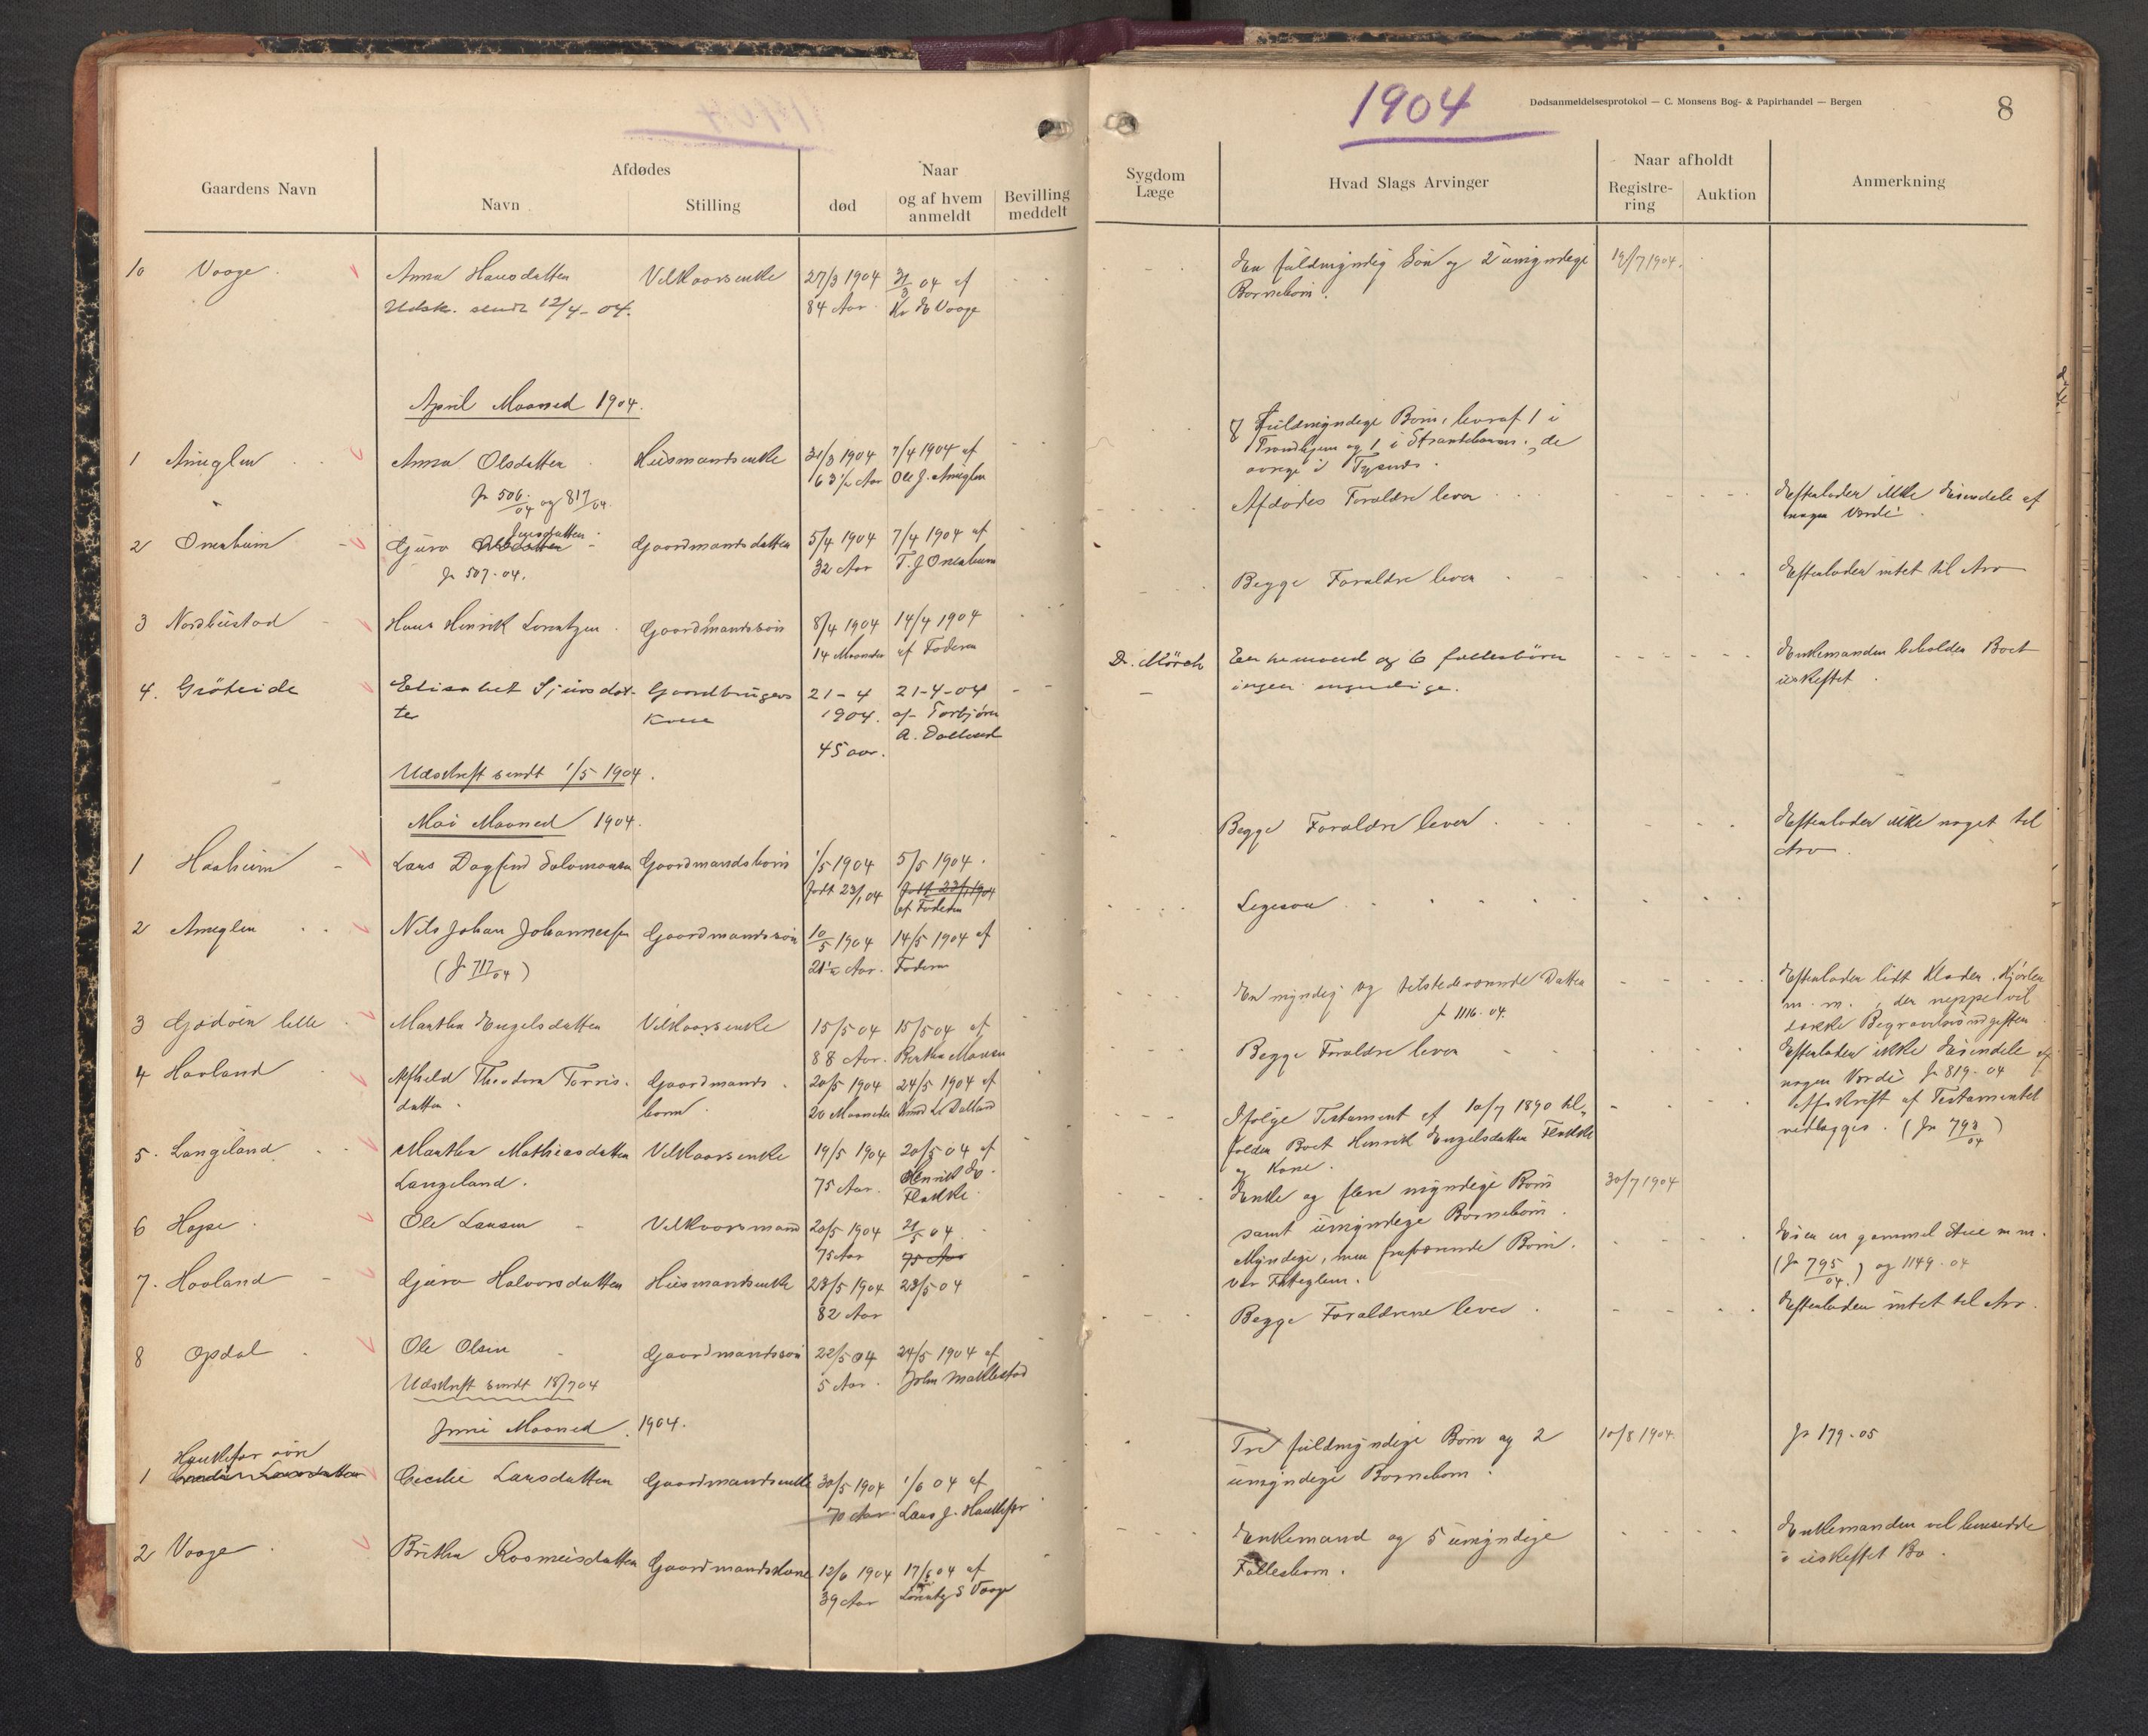 1904
Dødsanmeldelsesprotokol — C. Monsens Bog- & Papirhandel — Bergen
8
Gaardens Navn
Afdødes
Navn
Stilling
Naar
død
og af hvem anmeldt
Bevilling meddelt
Sygdom
Læge
Hvad Slags Arvinger
Naar afholdt
Registre-
ring
Auktion
Anmerkning
10 Vaage Anna Hansdatter Velkaarsenke 27/3 1904 31/3 04 af En fuldmyndig Søn og 2 umyndige 19/7 1904.
Udskr. sendt 12/4-04. 84 Aar Kr Vaage Børnebørn.
April Maaned 1904.
1 Aneglen Anna Olsdatter Husmandsenke 31/3 1904 7/4 1904 af 8 Fuldmyndige Børn, hvoraf 1 i
63 1/2 Aar Ole J. Aneglen Trondhjem og 1 i de
Jr 506/04 og 817/04. øvrige i Tysnes.
2 Onarheim Gjuro Jensdatter Gaardmandsdatter 5/4 1904 7/4 1904 af Afdødes Forældre lever Efterlader ikke Eiendele af
Jr 507-04. 32 Aar T. J Onarheim nogen Værdi
3 Nordhustad Hans Henrik Lorentzen Gaardmandssøn 8/4 1904 14/4 1904 Begge Forældre lever Efterlader intet til Arv
14 Maaneder af Faderen
4. Gröteide Elisabet Sjursdat- Gaardbrugers 21-4 21-4-04 Dr. Mörch Enkemand og 6 fællesbörn Enkemanden beholder Boet
ter Kone 1904. af Torbjörn ingen myndige. uskiftet
45 aar. A. Dalland
Udskrift sendt 1/5 1904.
Mai Maaned 1904.
1 Haaheim Lars Dagfind Salomonsen Gaardmandsbarn 1/5 1904 5/5 1904. Begge Forældre lever Efterlader ikke noget til
født 23/1 04 født 23/1 1904 Arv.
af Faderen
2 Aneglen Nils Johan Johannessen Gaardmandssøn 10/5 1904 14/5 1904 af Ligesaa
(Jr 717/04) 21 1/2 Aar. Faderen
3 Gjødøen lille Marthe Engelsdatter Velkaarsenke 15/5 04 15/5 04 af En myndig og tilstedeværende Datter Efterlader lidt Klæder, Kjørler
88 Aar. Bertha Monsen Jr 1116-04. m. m., der neppe vil
dække Begravelsesudgiften
4 Haaland Alfhild Theodora Torris- Gaardmands- 20/5 1904 24/5 1904 af Begge Forældre lever Efterlader ikke Eiendele af
datter barn 20 Maaneder Knud L. Dalland nogen Værdi Jr 819-04
5. Langeland Marthe Mathiasdatter Velkaarsenke 19/5 1904 20/5 04 af Ifølge Testament af 10/7 1890 til- Afskrift af Testamentet
Langeland. 75 Aar. Henrik E. falder Boet Henrik Engelsdatter Flakke vedlægges. (Jr 793/04)
Flakke. og Kone.
6 Hope Ole Larsen Velkaarsmand 20/5 1904 21/5 04. Enke og flere myndige Børn 30/7 1904
75 Aar 75 Aar samt umyndige Børnebørn.
7. Haaland Gjuro Halvorsdatter Husmandsenke 23/5 1904 28/5 04 Myndige, men fraværende Børn. Eier en gammel Stue m m.
82 Aar (Jr 795/04.) og 1149-04
8 Opdal Ole Olsen Gaardmandssøn 22/5 04 24/5 1904 af Begge Forældrene lever. Efterlader intet til Arv.
Udskrift sendt 18/7 04 5 Aar. John Maklestad
Juni Maaned 1904.
Haukefær øvre
1 Cecilie Larsdatter Gaardmandsenke 30/5 1904 1/6 04 af Tre fuldmyndige Børn og 2 10/8 1904 Jr 179-05
70 Aar Lars J. Haukefær umyndige Børnebørn.
2 Vaage Britha Rasmusdatter Gaardmandskone 12/6 1904 17/6 04 af Enkemand og 5 umyndige Enkemanden vil hensidde
39 Aar Lorentz S Vaage Fællesbørn. i uskiftet Bo.